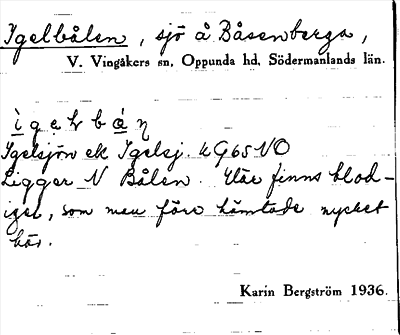 Igelbålen, sjö å Båsenberga,
V. Vingåkers sn, Oppunda hd, Södermanlands län.
Igelsjön ek Igelsj. kG65NO
Ligger N Bålen. Här finns blod-
igel, som man förr hämtade mycket
här.
Karin Bergström 1936.